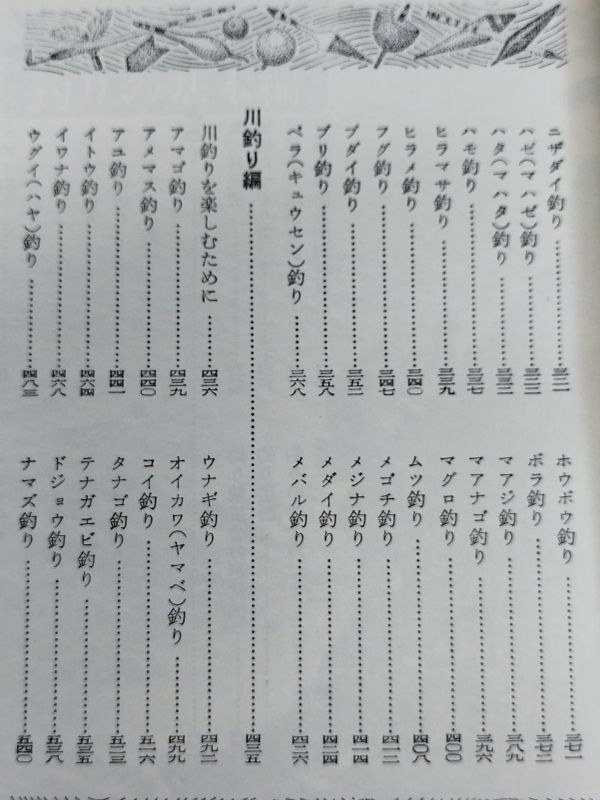 ニザダイ釣り……三二一
ハゼ(マハゼ)釣り……三二三
ハタ(マハタ)釣り……三三二
ハモ釣り……三三七
ヒラマサ釣り……三三九
ヒラメ釣り……三四〇
フグ釣り……三四七
ブダイ釣り……三五二
ブリ釣り……三五八
ベラ(キュウセン)釣り……三六八
ホウボウ釣り……三七一
ボラ釣り……三七二
マアジ釣り……三八九
マアナゴ釣り……三九六
マグロ釣り……四〇〇
ムツ釣り……四〇八
メゴチ釣り……四一二
メジナ釣り……四一四
メダイ釣り……四二四
メバル釣り……四二六
川釣り編……四三五
川釣りを楽しむために……四三六
アマゴ釣り……四三九
アメマス釣り……四四〇
アユ釣り……四四一
イトウ釣り……四六四
イワナ釣り……四六八
ウグイ(ハヤ)釣り……四八三
ウナギ釣り……四九二
オイカワ(ヤマベ)釣り……四九九
コイ釣り……五一六
タナゴ釣り……五二三
テナガエビ釣り……五三五
ドジョウ釣り……五三八
ナマズ釣り……五四〇